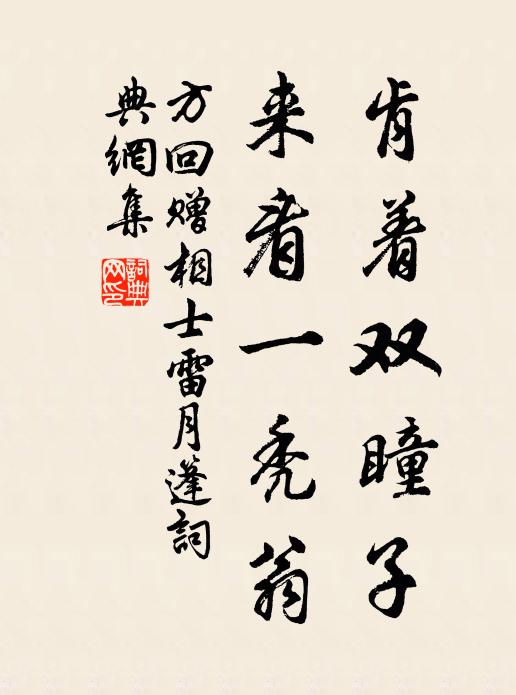 肯着双瞳子
来看一秃翁
方回赠相士雷月蓬詞
典網集
詞典网印